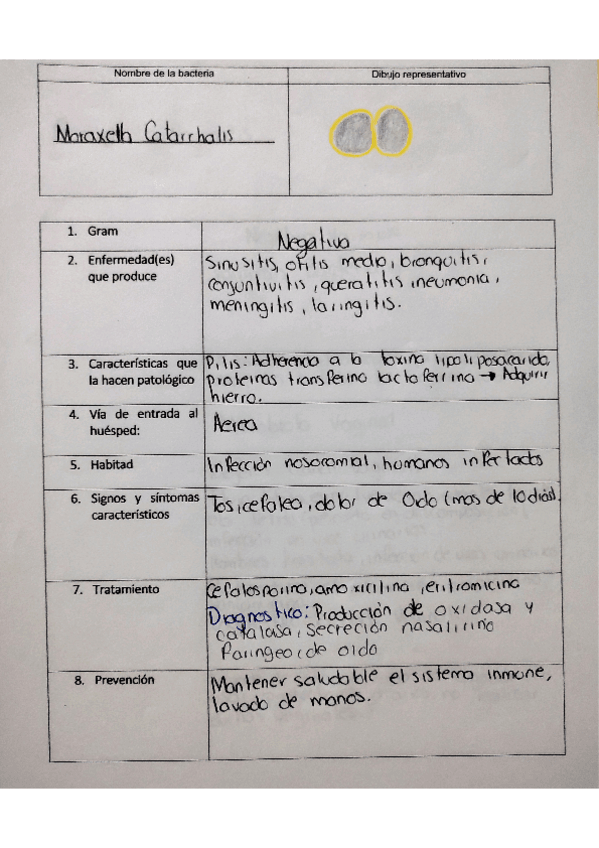 Nombre de la bacteria
Dibujo representativo
Moraxella Catarrhalis
1. Gram
Negativa
2. Enfermedad(es) que produce
Sinusitis, otitis media, bronquitis,
conjuntivitis, queratitis, neumonia,
meningitis, laringitis.
3. Características que la hacen patológico
Pilis: Adherencia a la toxina lipolíposacarida,
Proteinas transferina lactoferrina → Adquirir
hierro.
4. Vía de entrada al huésped:
Aerea
5. Habitad
Infección nosocomial, humanos infectados
6. Signos y síntomas característicos
Tos, cefalea, dolor de Oido (mas de 10 días).
7. Tratamiento
Cefalosporina, amoxicilina, eritromicina
Diagnostico: Producción de oxidasa y
catalasa, secreción nasal, rino
Faringeo, de oido
8. Prevención
Mantener saludable el sistema inmone,
lavado de manos.